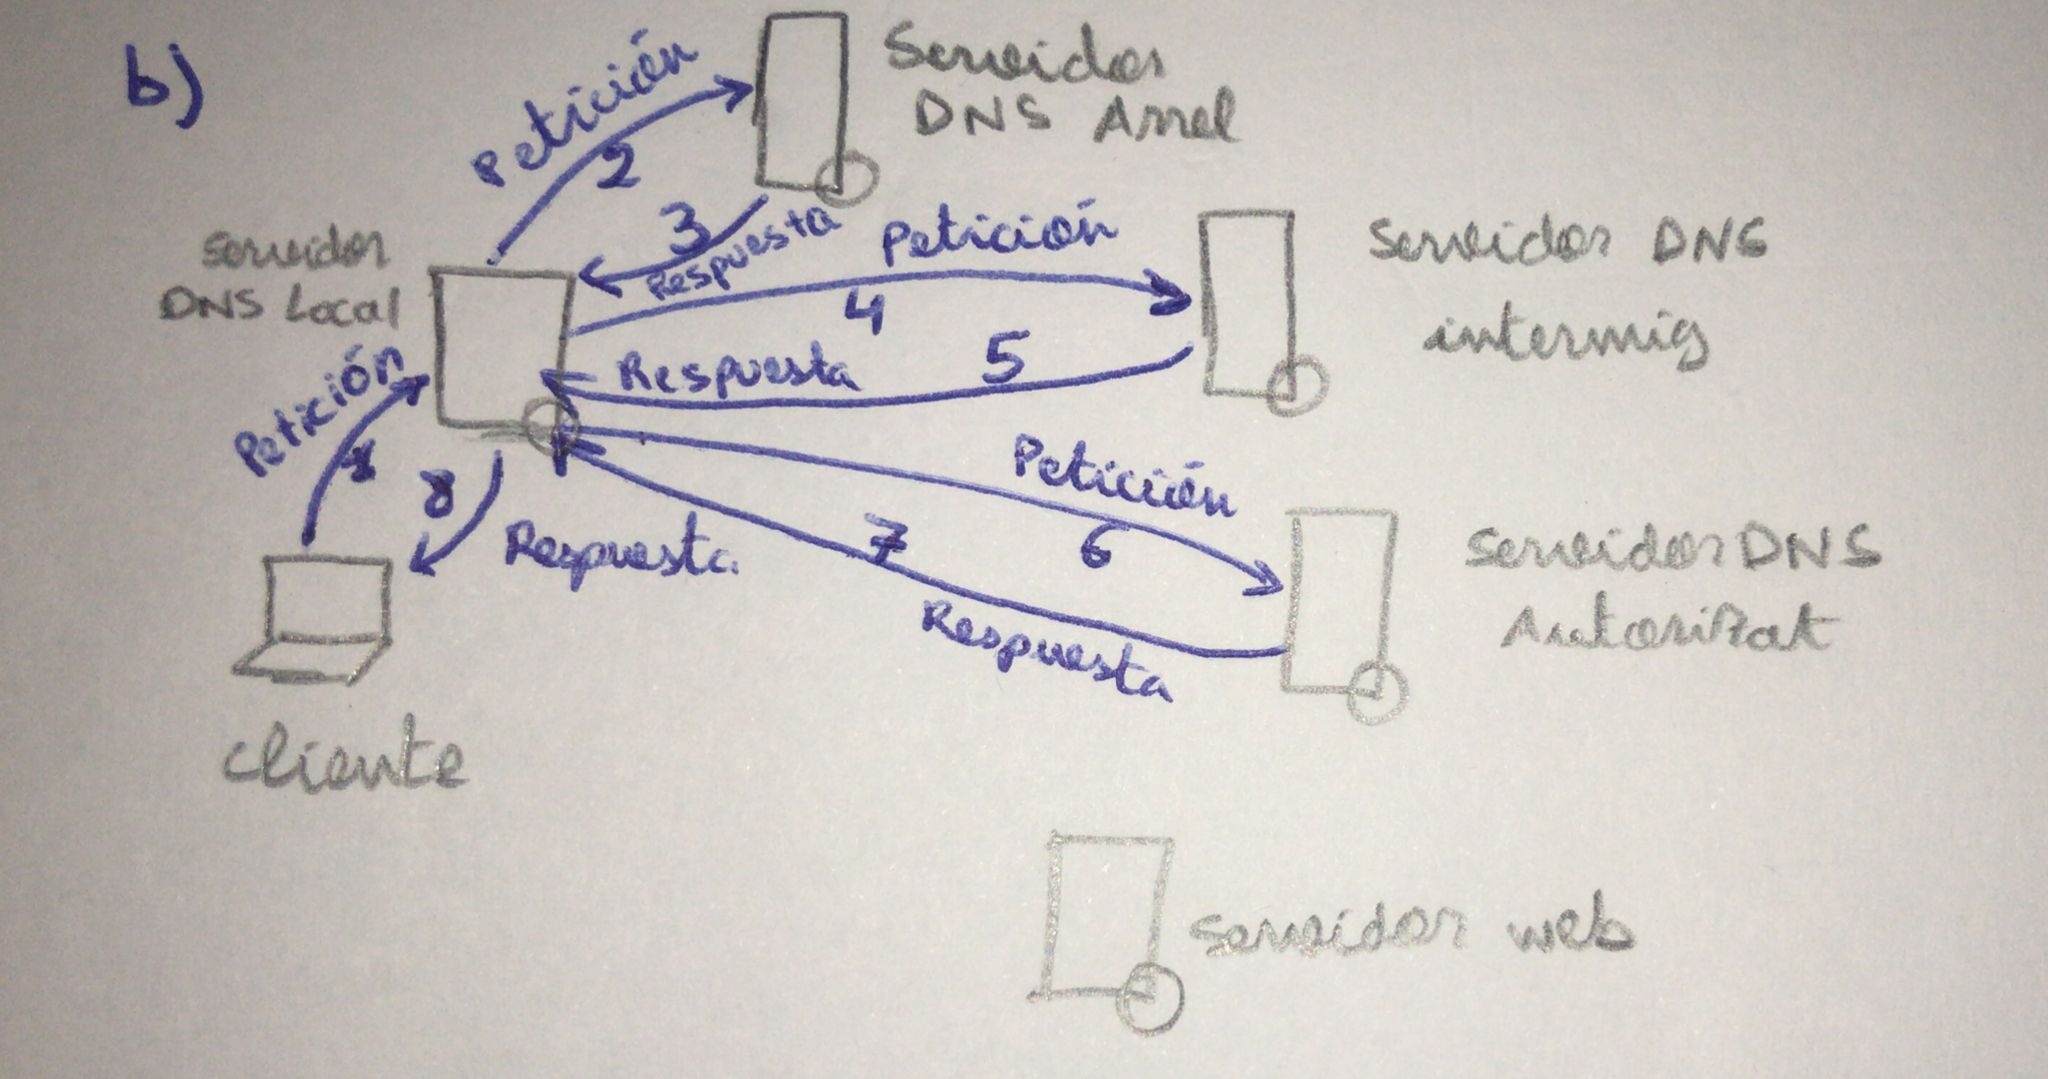 b)
Petición
2
Servidor
DNS Arrel
3
Respuesta
Servidor
DNS Local
Petición
4
Servidor DNS
intermig
Respuesta
5
Petición
1
8
Respuesta
Petición
6
7
Respuesta
Servidor DNS
Autorizat
cliente
Servidor web